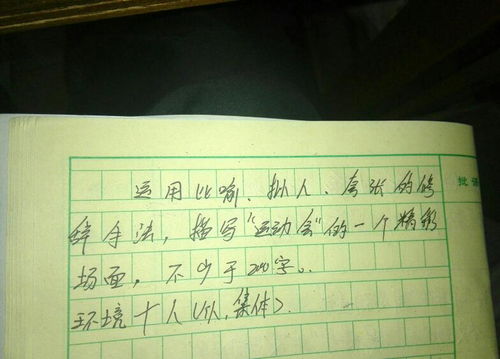 运用比喻、拟人、夸张的修
辞手法，描写"运动会"的一个精彩
场面，不少于200字。
环境十人（个人，集体）.
批